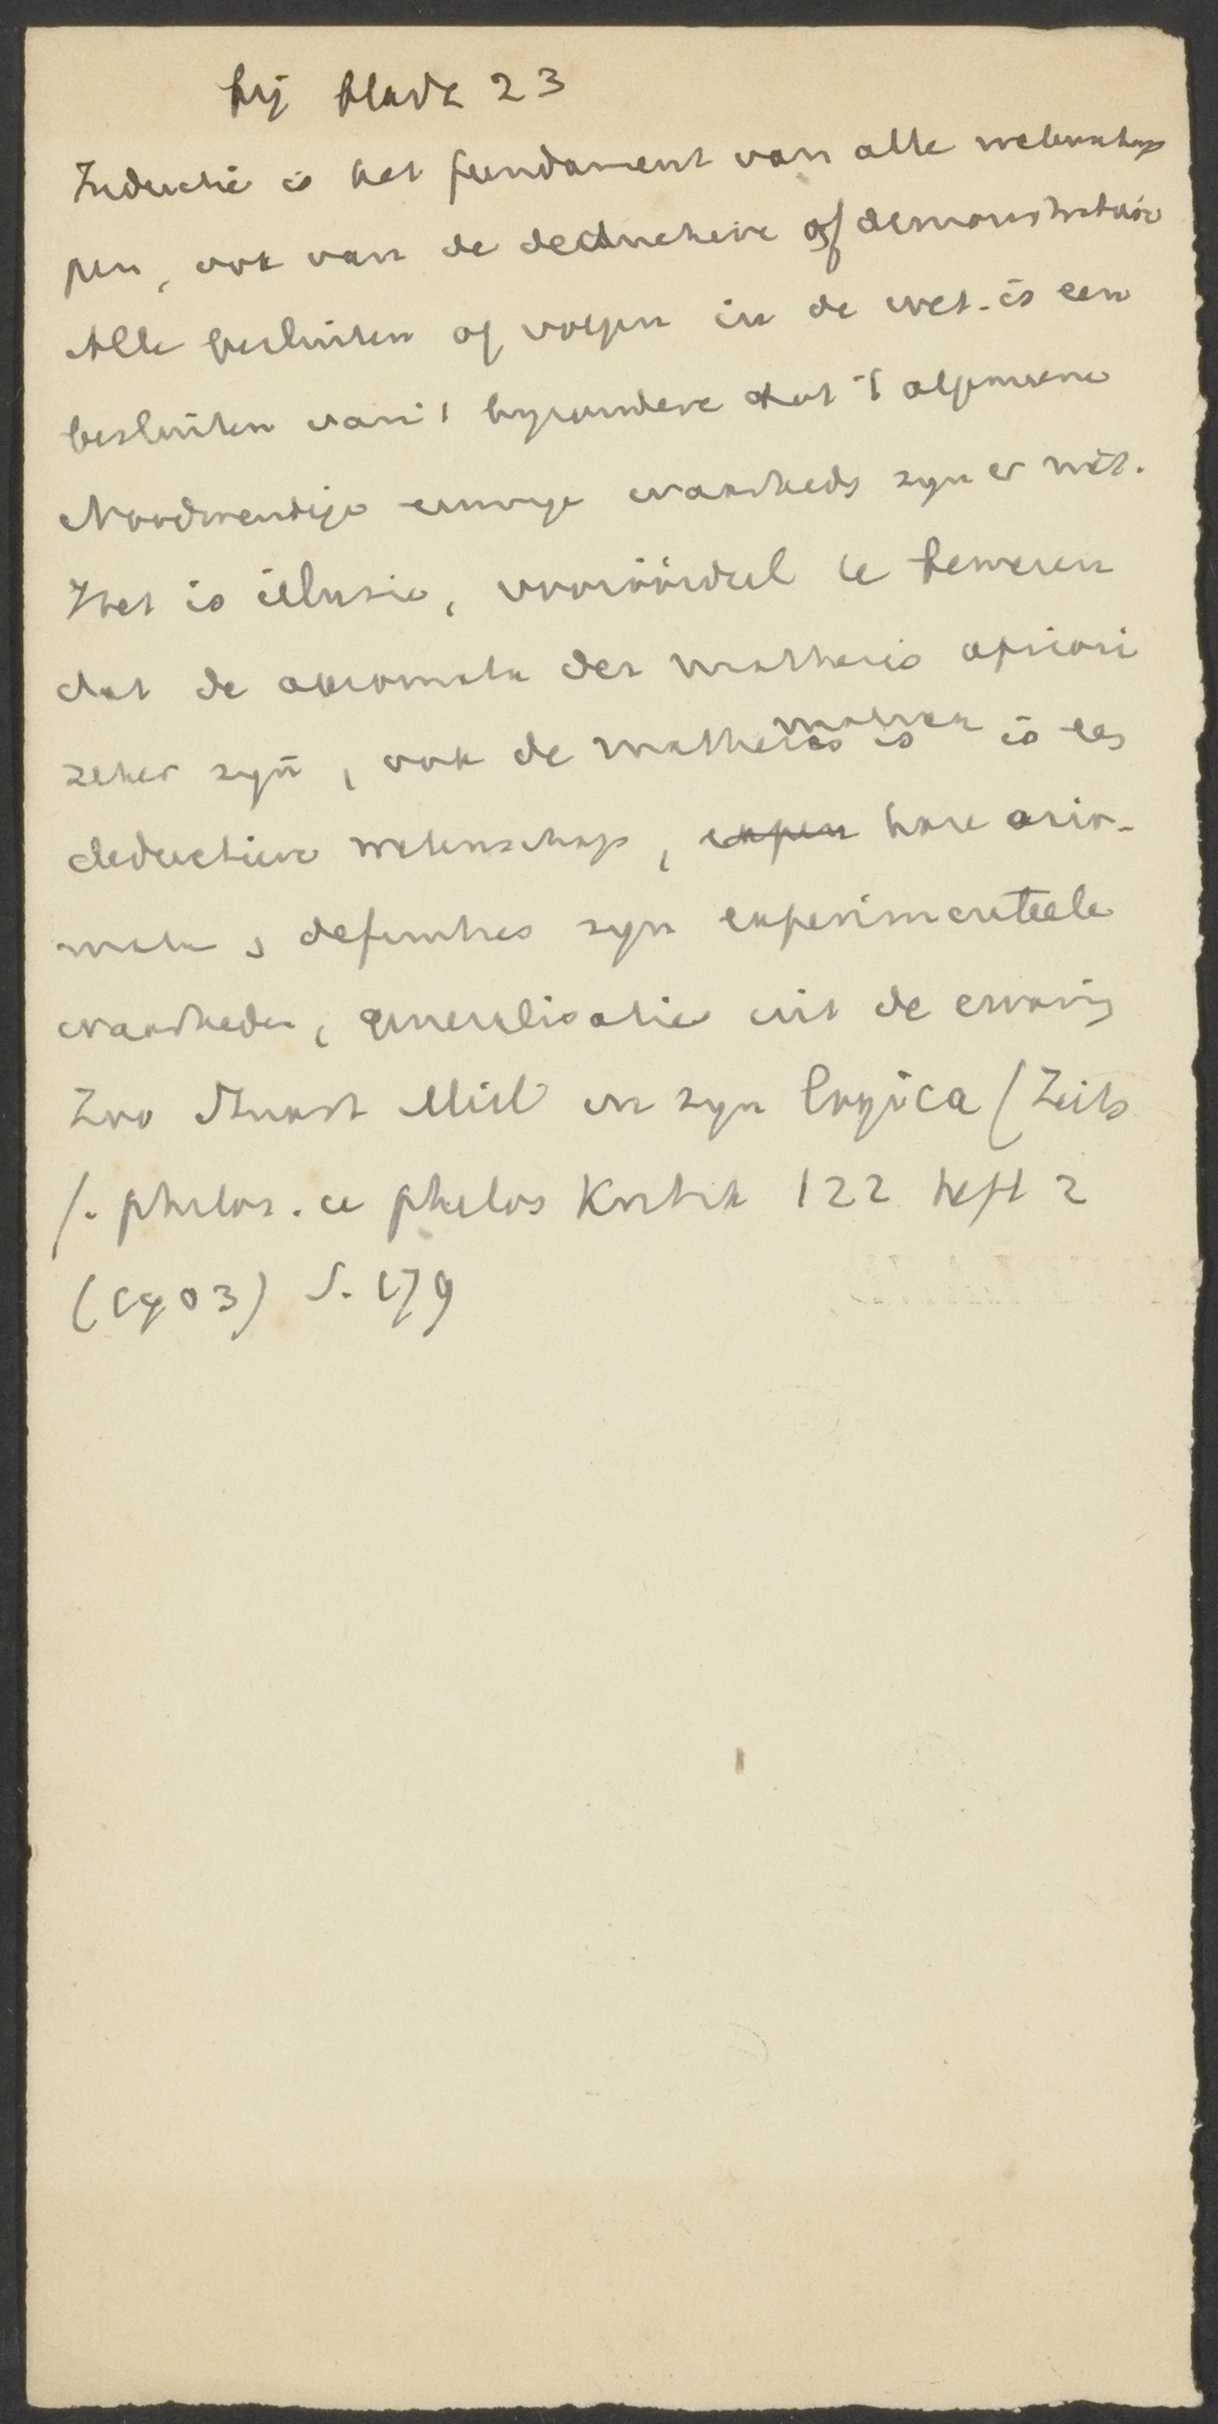 bij bladz 23
Inductie is het fundament van alle wetenschap
pen, ook van de deductieve of demonstratieve
Alle besluiten of volgen in de wet. is een
besluiten van 't byzondere tot 't algemeene
Noodwendige eeuwige waarheds zyn er niet.
Het is illusie, vooroordeel te beweren
dat de axiomata der mathesis apriori
zeker zyn, ook de mathesis is is een
deductieve wetenschap, expen hare axio-
mata, definities zyn experimenteele
waarheden, generalisatie uit de ervaring
Zoo Stuart Mill in zyn logica (Zeits
f. philos. u philos Kritik 122 heft 2
(1903) S. 179